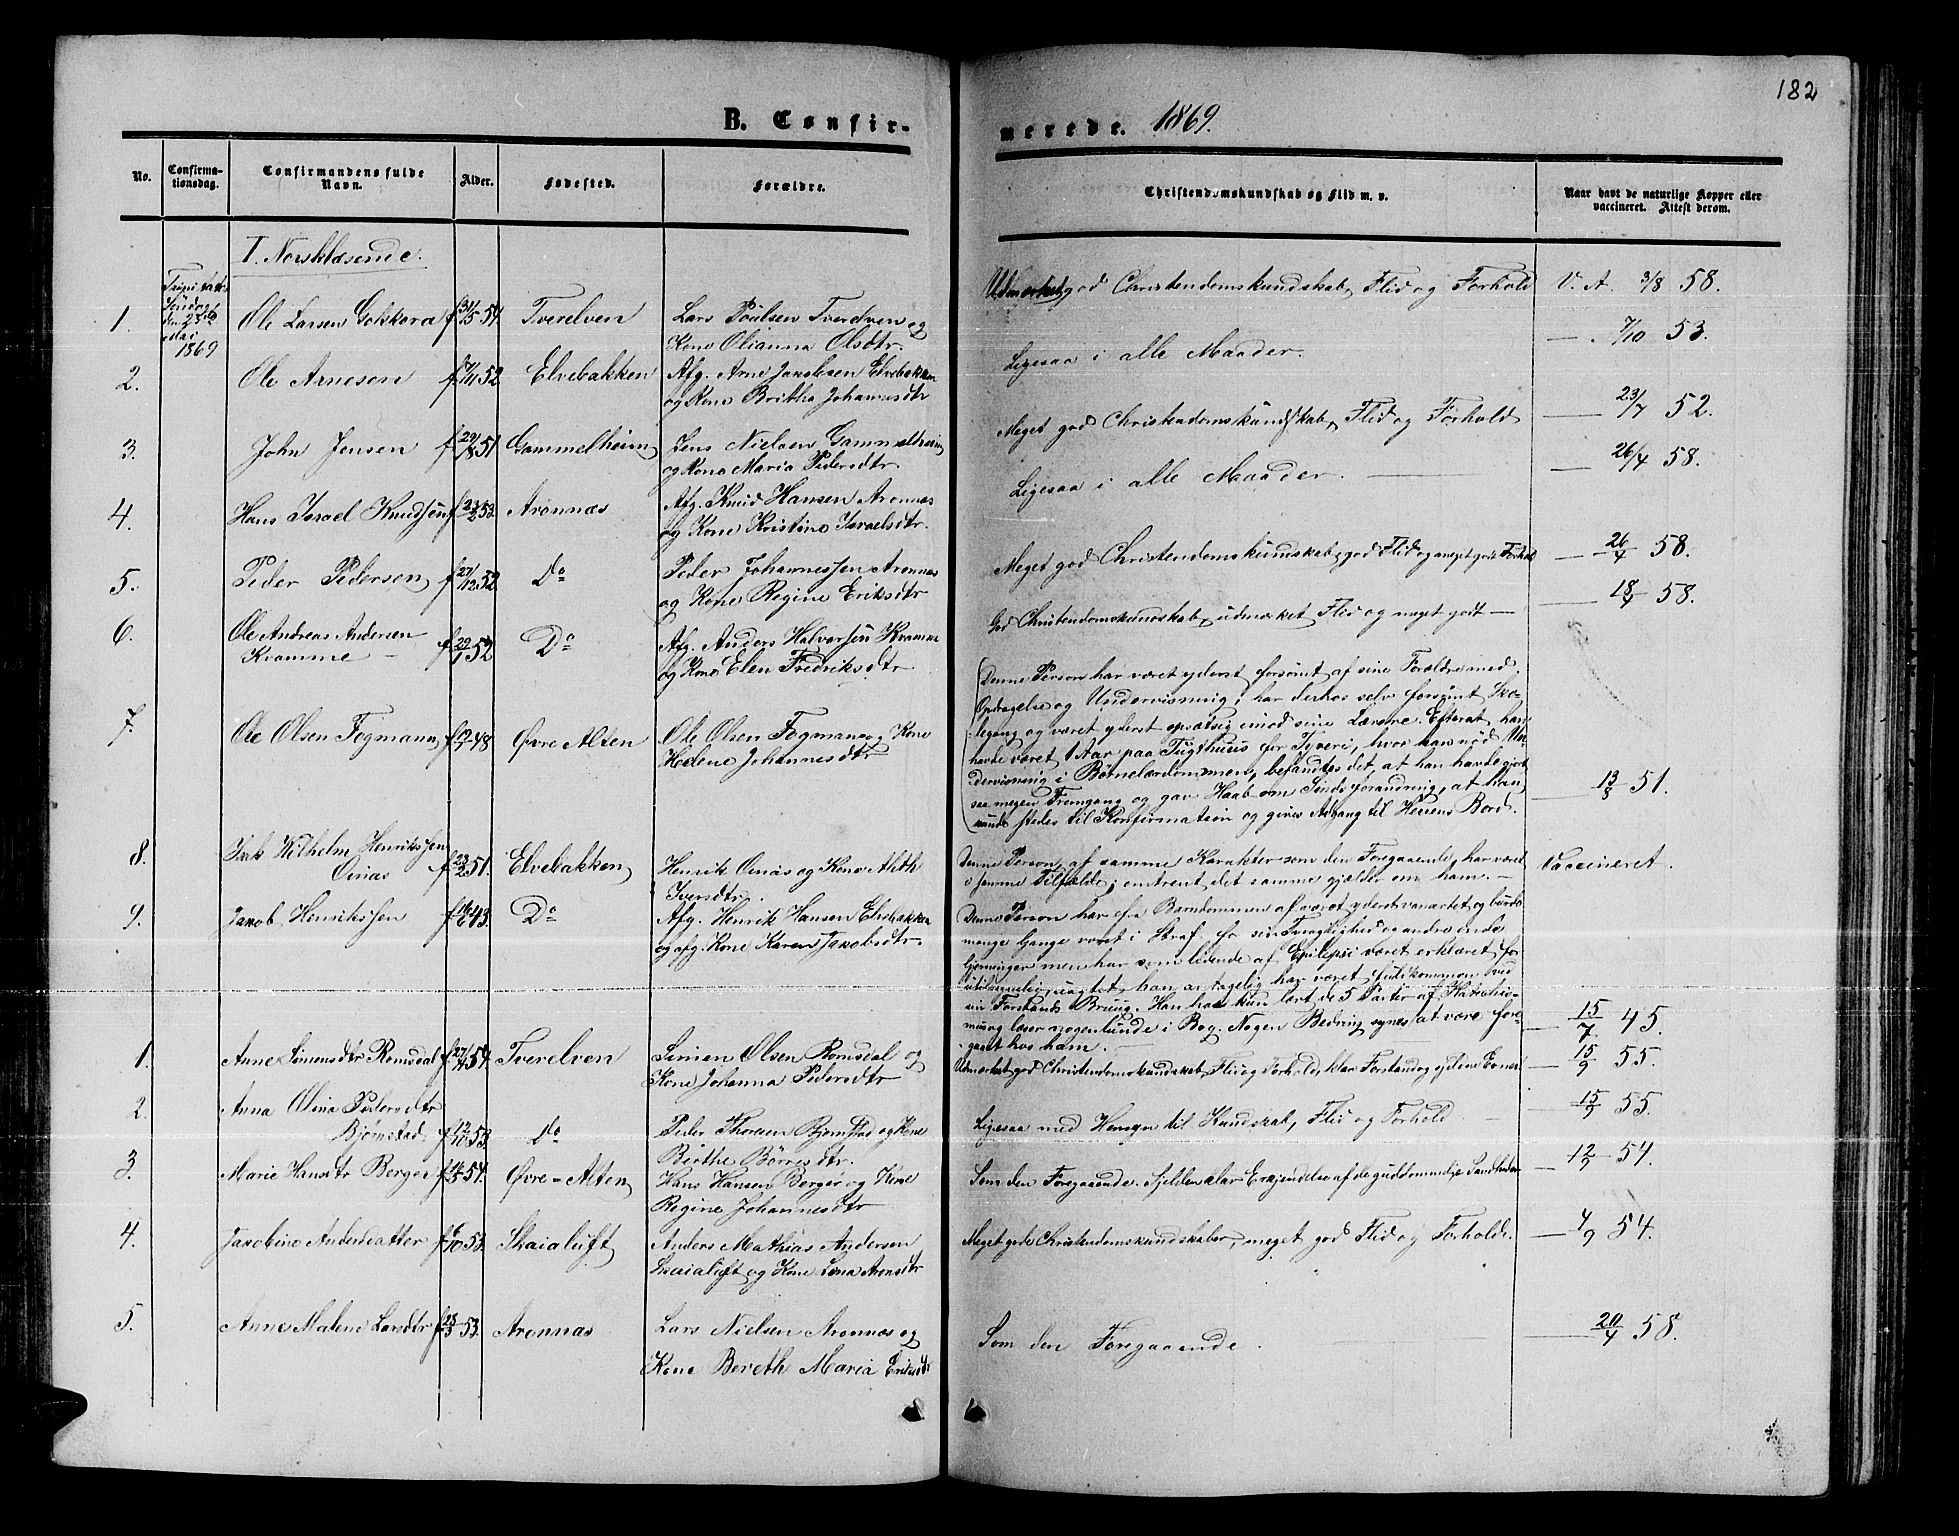 182
B. Confir-
merede. 1869.
No.
Confirma-
tionsdag.
Confirmandens fulde
Navn.
Alder.
Fødested.
Forældre.
Christendomskundskab og Flid m. v.
Naar havt de naturlige Kopper eller
vaccineret. Attest derom.
I. Norsklæsende.
Trinitatis
Søndag
den 23de
Mai
1869
1. Ole Larsen Gokkara f 31/5 54. Tverelven Lars Poulsen Tverelven og
Kone Olianna Olsdtr.
Udmærket god Christendomskundskab, Flid og Forhold V. A. 3/8 58.
2. Ole Arnesen 52. Elvebakken Afg. Arne Jakobsen Elvebakken
og Kone Britha Johannesdtr
Ligesaa i alle Maader. — 7/10 53.
3. John Jensen f 29/8 51 Gammelheim Jens Nielsen Gammelheim
og Kone Maria Pedersdtr.
Meget god Christendomskundskab, Flid og Forhold — 23/7 52.
4. Hans Israel Knudsen f 23/2 53. Aronnæs Afg. Knud Hansen Aronnæs
og Kone Kristine Israelsdtr.
Ligesaa i alle Maader. — 26/4 58.
5. Peder Pedersen f 27/12 52 Do Peder Johannessen Aronnæs
og Kone Regine Eriksdtr
Meget god Christendomskundskab, god Flid og meget godt Forhold — 26/4 58.
6. Ole Andreas Andersen
Kramme — f 29/1 52 Do Afg. Anders Halvorsen Kramme
og Kone Elen Fredriksdtr
God Christendomskundskab, udmærket Flid og meget godt — — 18/4 58.
7. Ole Olsen Fogmann 48 Øvre Alten Ole Olsen Fogman og Kone
Helene Johannesdtr
Denne Person har været yderst forsømt af sine Forældre med
Opdragelse og Undervisning, har derhos selv forsømt Sko-
legang og været yderst opsætsig imod sine Lærere. Efterat han
havde været 1 Aar paa Tugthuus for Tyveri, hvor han nød Un-
dervisning i Børnelærdommen, befandtes det, at han havde gjort
saa megen Fremgang og gav Haab om Sindsforandring, at han
kunde stedes til Konfirmation og gives Adgang til Herrens Bord. — 13/8 51.
8. Isak Wilhelm Henriksen
Oinas f 23/2 51. Elvebakken Henrik Oinas og Kone
Iversdtr.
Denne Person, af samme Karakter som den Foregaaende, har været
i samme Tilfælde; omtrent det samme gjælder om ham. — Vaccineret.
9. Jakob Henriksen 43. Do Afg. Henrik Hansen Elvebakken
og afg. Kone Karen Jakobsdtr.
Denne Person har fra Barndommen af været yderst vanartet og burde
mange Gange været i Straf for sin Tyvagtighed og andre onde
Gjerninger men har som lidende af Epilepsi været erklæret for
utilregnelig, uagtet han har været fuldkommen ved
sin Forstands Brug. Han har kun lært de 5 Parter af Katechis-
mus og læser nogenlunde i Bog. Nogen Bedring synes at være fore-
gaaet hos ham. — 15/7 45.
1. Anne Simensdtr Romsdal 54. Tverelven Simen Olsen Romsdal og
Kone Johanna Pedersdtr
Udmærket god Christendomskundskab, Flid og Forhold, klar Forstand og sjeldne Evner — 15/9 55.
2. Anna Olina Pedersdtr
Bjørnstad f 12/10 53 Do Peder Thoresen Bjørnstad og Kone
Birthe Børresdtr.
Ligesaa med Hensyn til Kundskab, Flid og Forhold — 15/9 55.
3. Marie Hansdtr Berger 54. Øvre-Alten Hans Hansen Berger og Kone
Regine Johannesdtr
Som den Foregaaende. Sjelden klar Erkjendelse af de guddommelige Sandheder — 12/9 54.
4. Jakobine Andersdatter f 6/10 53 Skaialuft Anders Mathias Andersen
Skaialuft og Kone Lena Aronsdtr
Meget gode Christendomskundskaber, meget god Flid og Forhold. — 4/9 54.
5. Anne Malene Larsdtr 53. Aronnæs Lars Nielsen Aronnæs og
Kone Bereth Maria Eriksdtr
Som den Foregaaende. — 20/4 58.